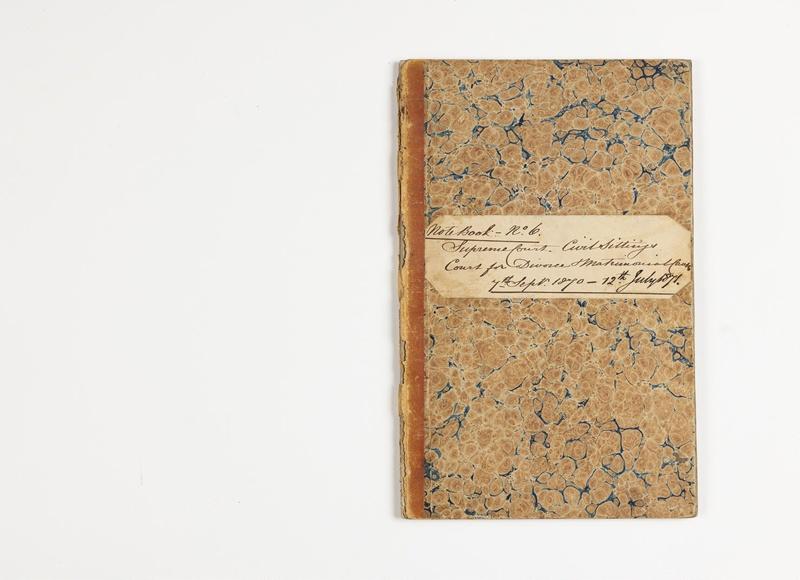 Note Book - No. 6.
Supreme Court - Civil Sittings
Court for Divorce & Matrimonial Causes
7th Sept. 1870 - 12th July 1871.